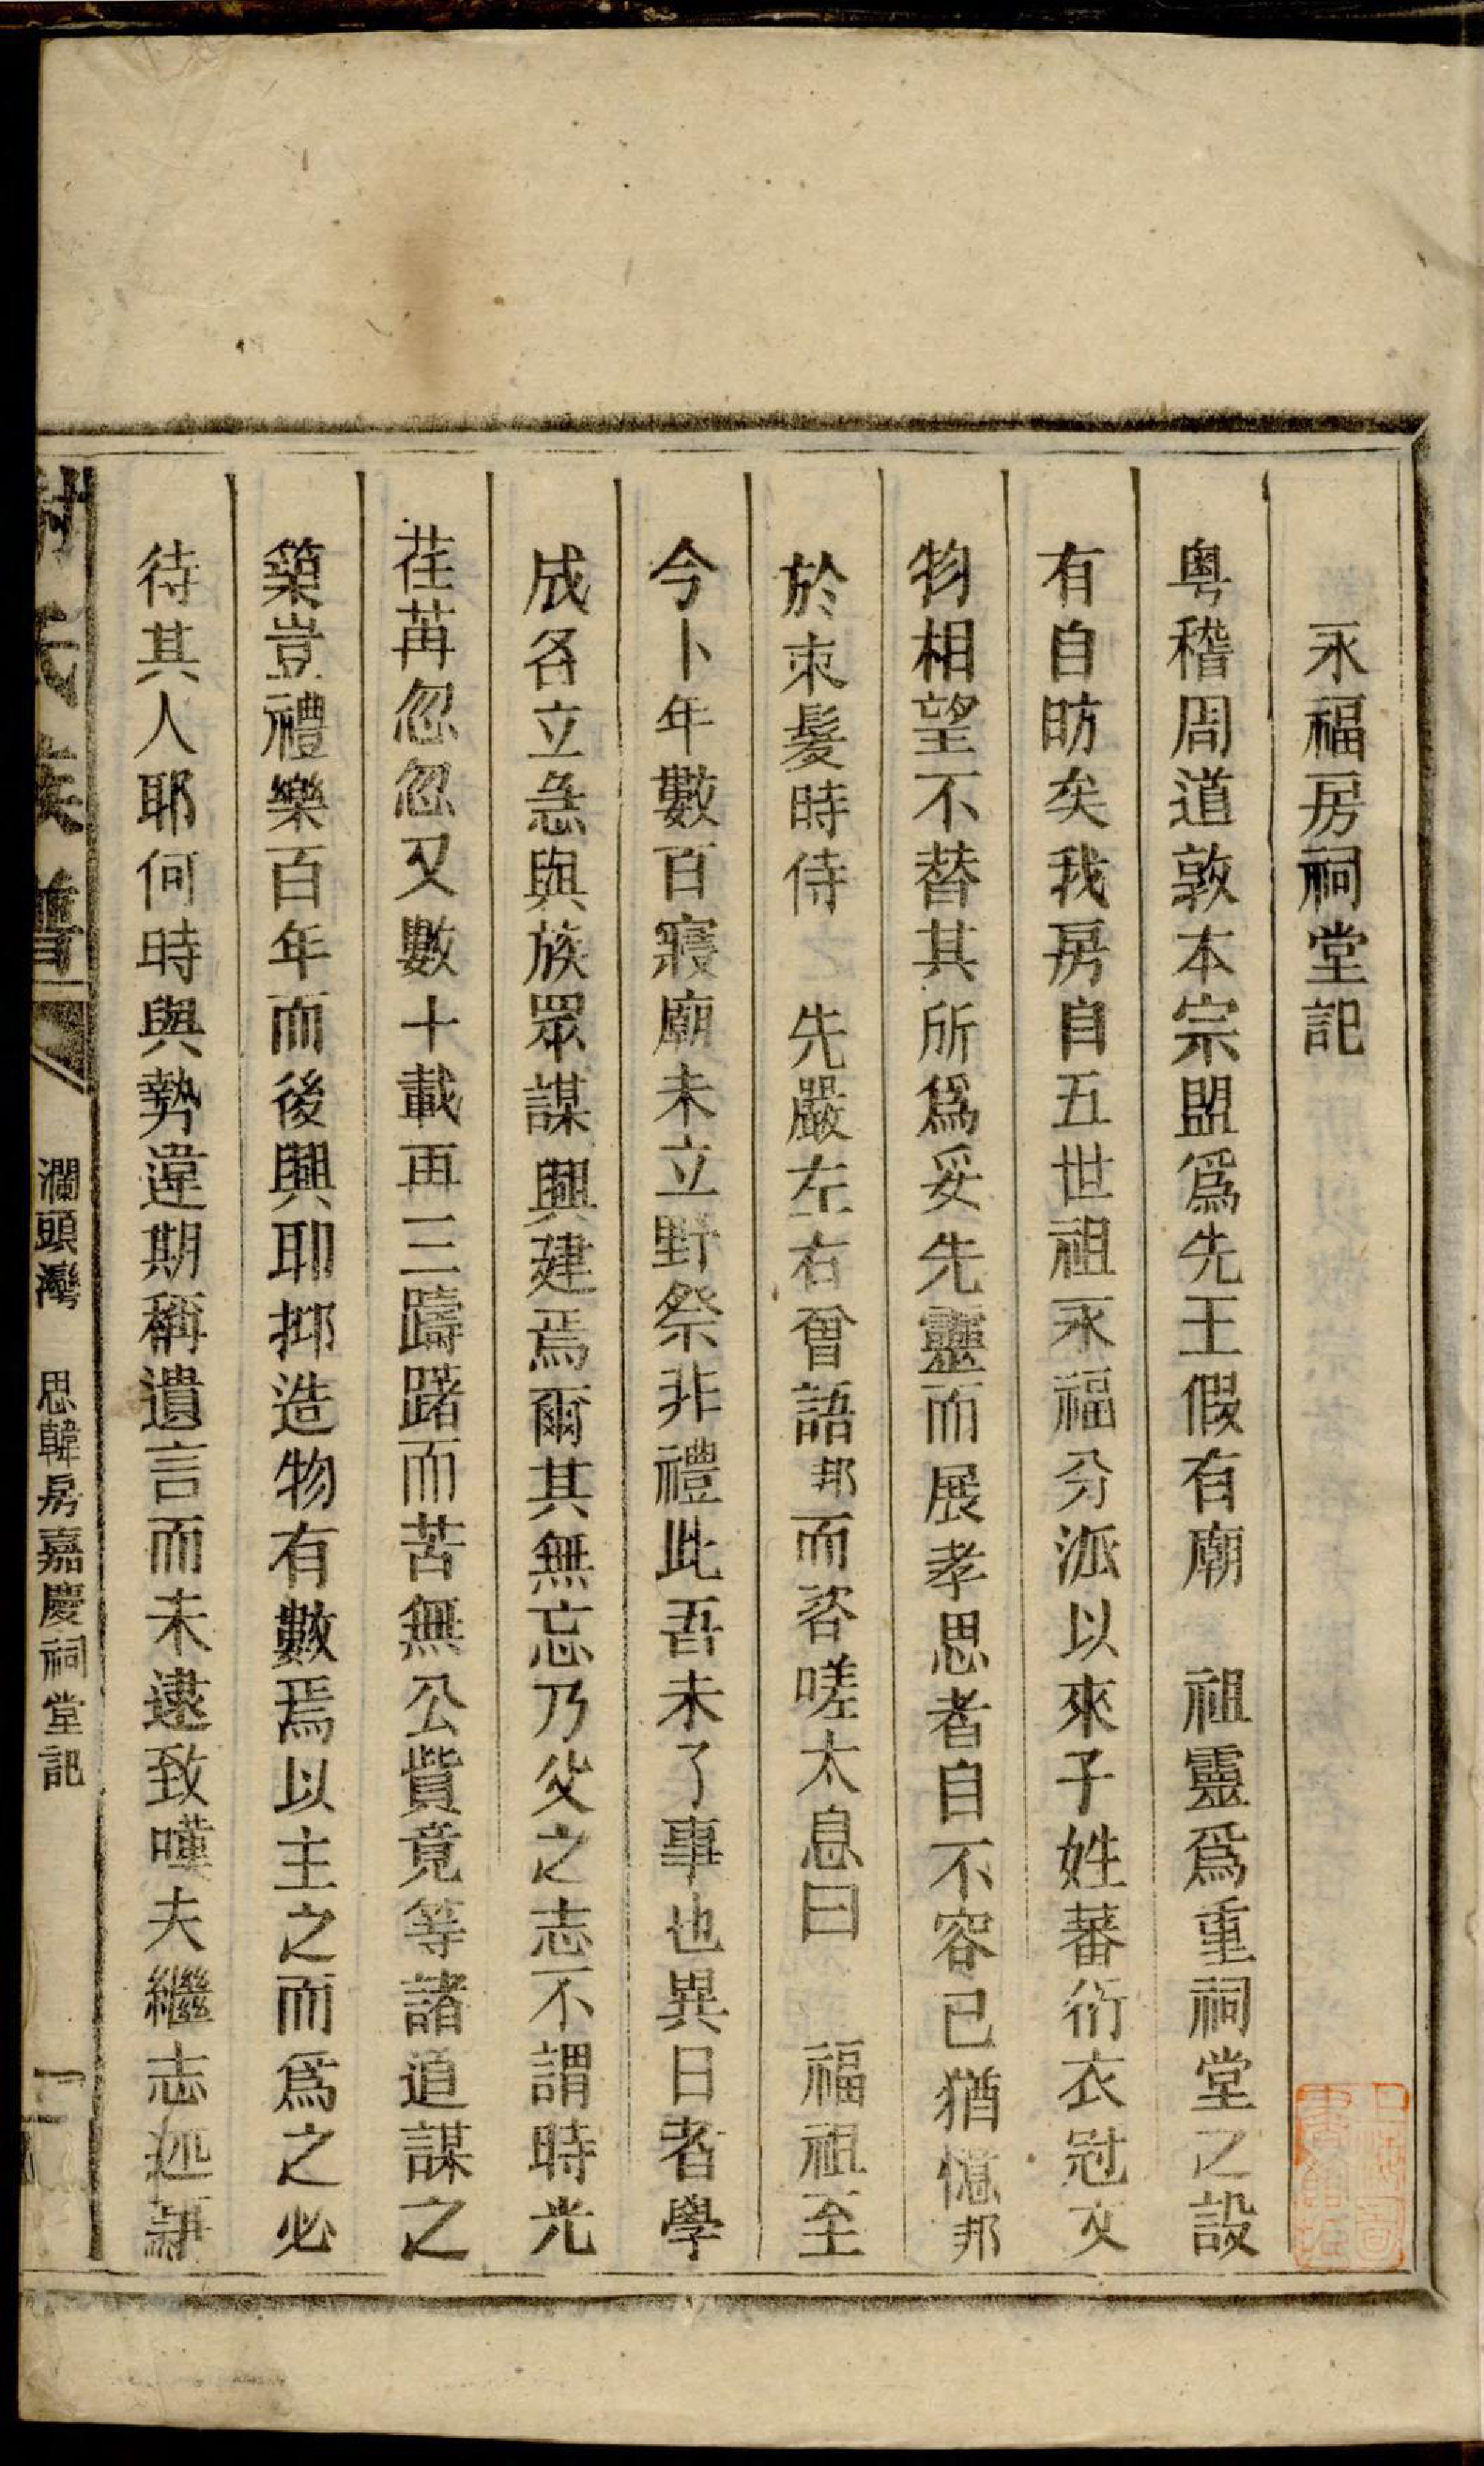 永福房祠堂記
粵稽周道敦本宗盟爲先王假有廟　祖靈爲重祠堂之設
有自昉矣我房自五世祖永福分派以來子姓蕃衍衣冠文
物相望不替其所爲妥先靈而展孝思者自不容已猶憶邦
於束髮時侍　先嚴左右曾語邦而咨嗟太息曰　福祖至
今卜年數百寢廟未立野祭非禮此吾未了事也異日者學
成名立急與族眾謀興建焉爾其無忘乃父之志不謂時光
荏苒忽忽又數十載再三躊躇而苦無公貲竟等諸道謀之
築豈禮樂百年而後興耶抑造物有數焉以主之而爲之必
待其人耶何時與勢違期稱遺言而未逮致嘆夫繼志述
氏族譜
瀾頭灣　思韓房嘉慶祠堂記